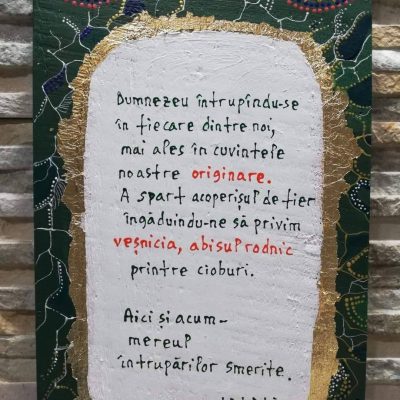 Dumnezeu întrupîndu-se
în fiecare dintre noi,
mai ales în cuvintele
noastre originare.
A spart acoperișul de fier
îngăduindu-ne să privim
veșnicia, abisul rodnic
printre cioburi.
Aici și acum-
mereul
întrupărilor smerite.